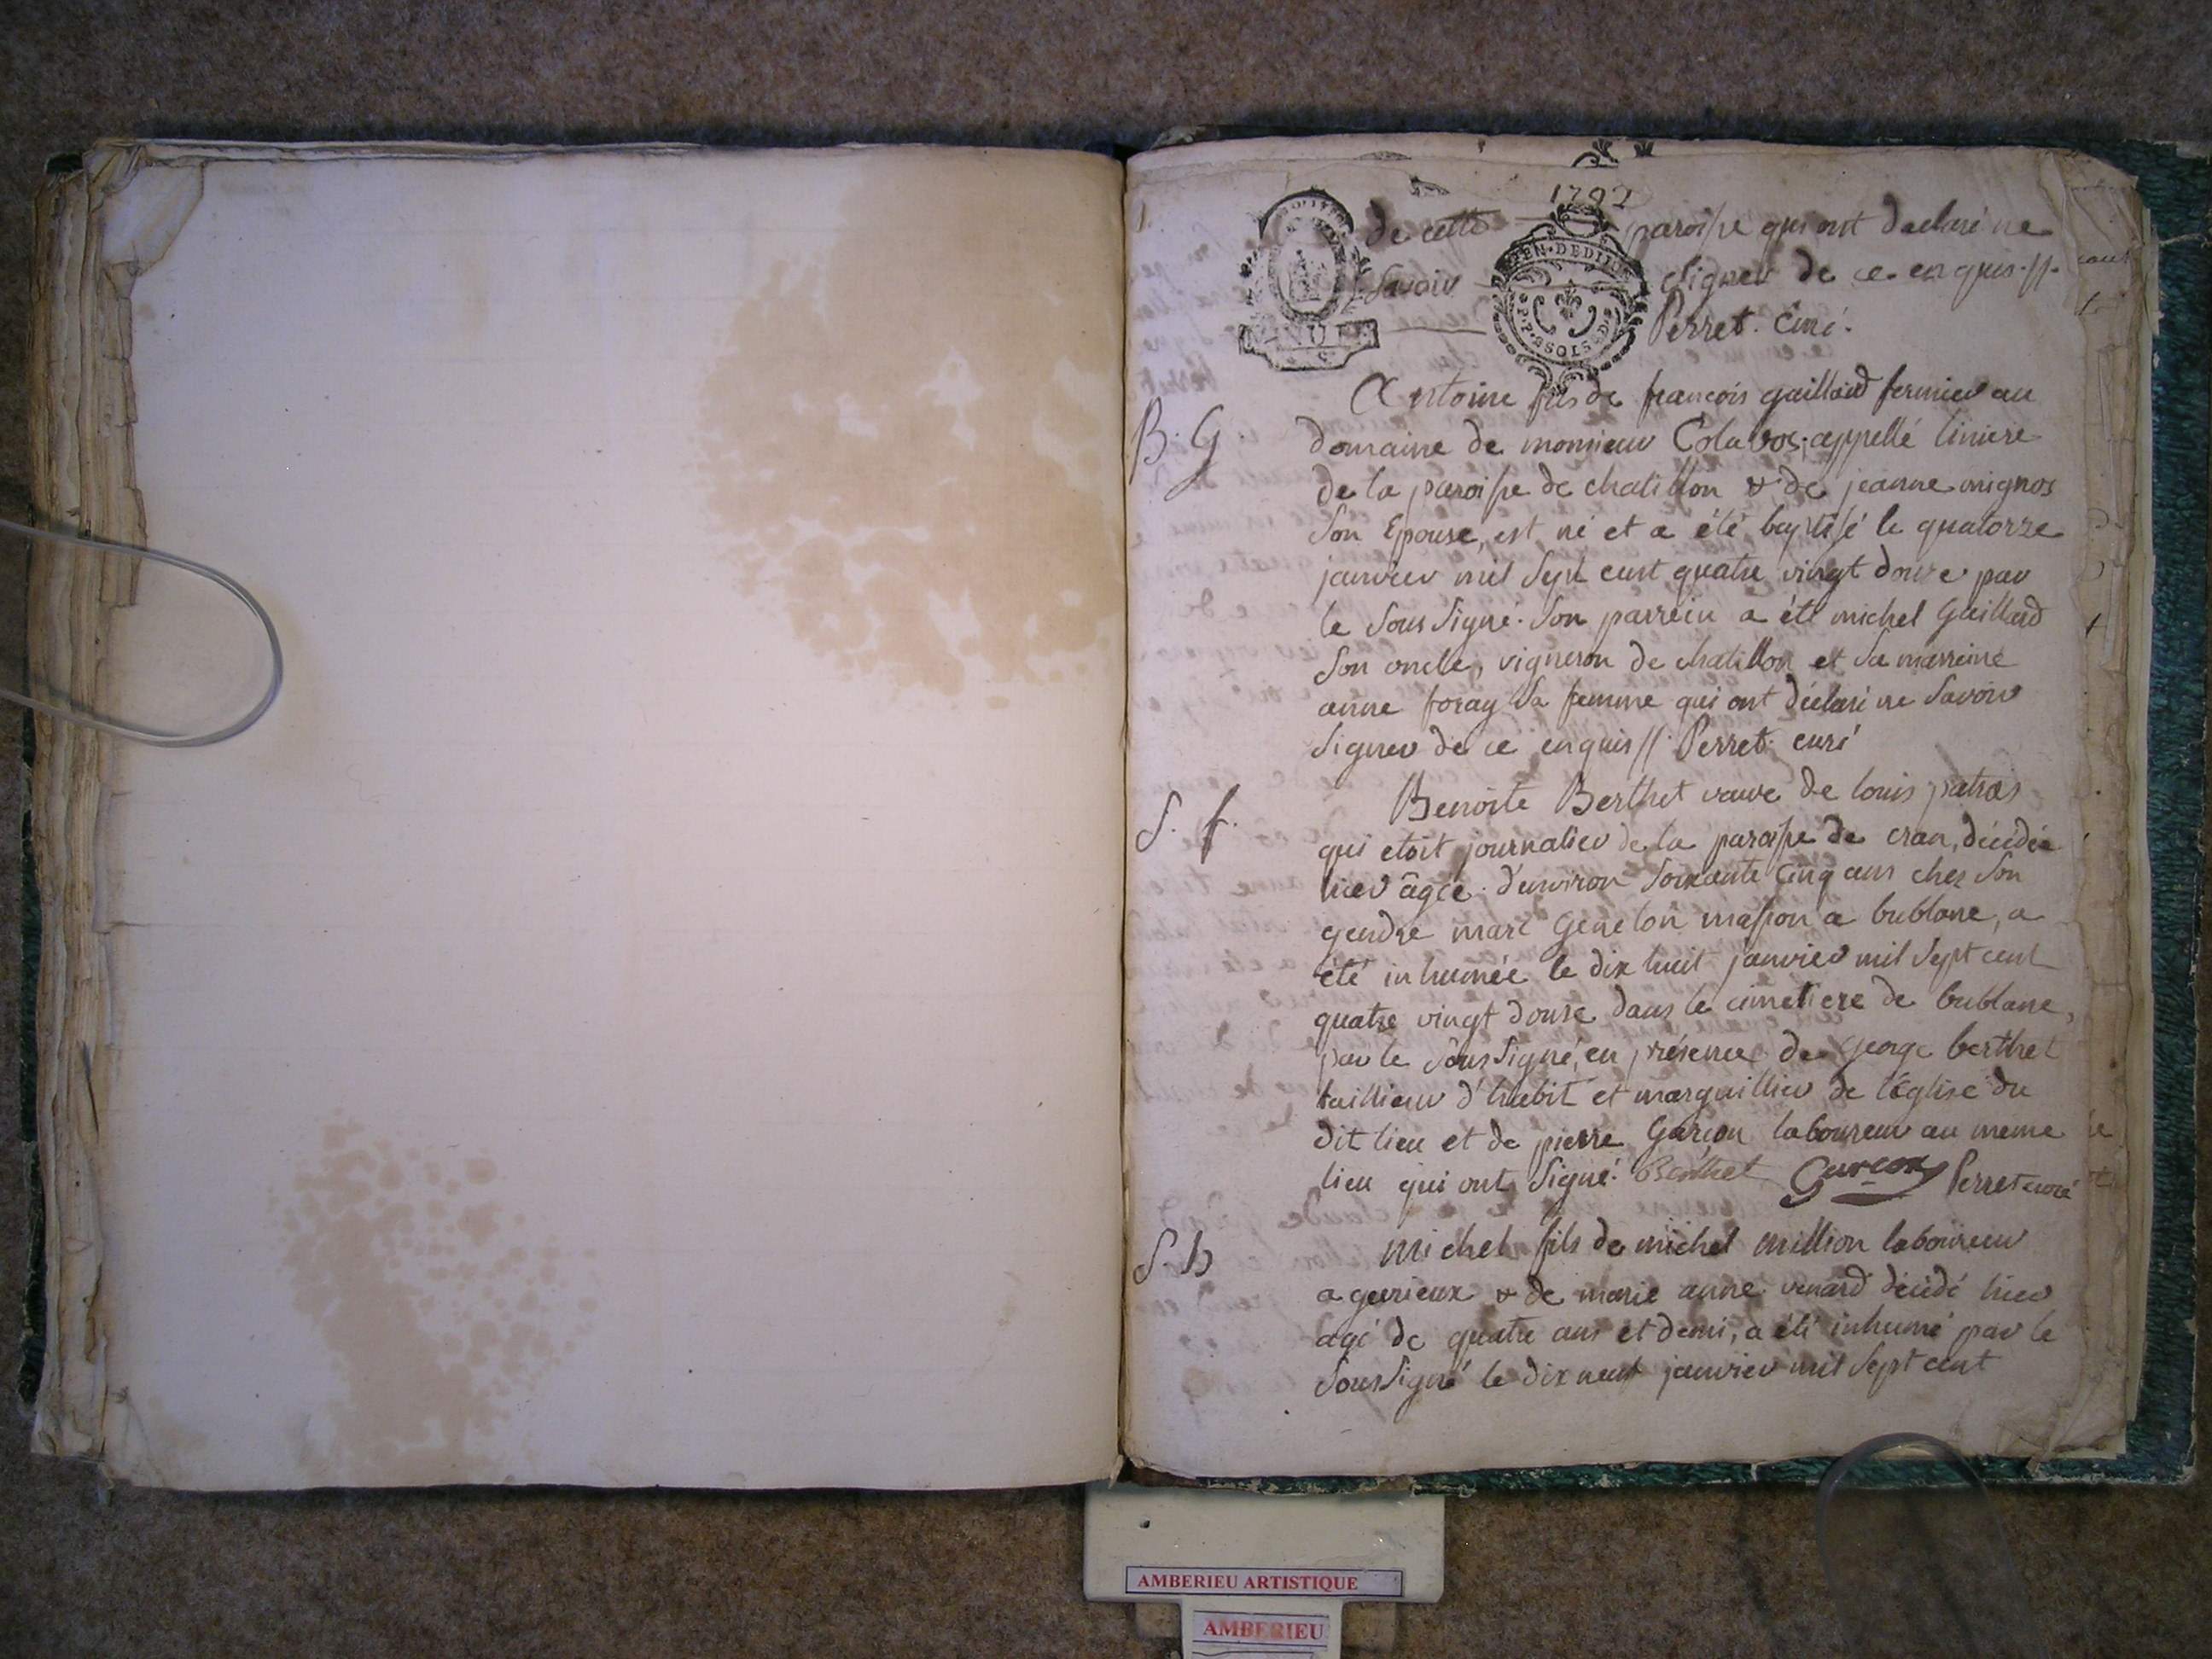 1792
de cette paroisse qui ont déclaré ne
savoir signer de ce enquis.//.
Perret. Curé.
B. G.
Antoine fils de françois gaillard fermier au
domaine de monsieur appellé liniere
de la paroisse de chatillon & de jeanne
son Epouse, est né et a été baptisé le quatorze
janvier mil sept cent quatre vingt douze par
le sous signé. son parrein a été michel Gaillard
son oncle, vigneron de chatillon et sa marreine
anne foray sa femme qui ont déclaré ne savoir
signer de ce enquis // Perret curé
S. f.
Benoite Berthet veuve de louis
qui etoit journalier de la paroisse de cran, décédée
hier âgée d'environ soixante cinq ans chez son
gendre marc Geneton masson a bublane, a
été inhumée le dix huit janvier mil sept cent
quatre vingt douze dans le cimetiere de bublane,
par le sous signé, en présence de george berthet
tailleur d'habit et marguillier de l'église du
dit lieu et de pierre Garçon laboureur au meme
lieu qui ont signé. Berthet Garcon Perret curé
S. h
Michel fils de michel million laboureur
a gevrieux & de marie anne venard décédé hier
agé de quatre ans et demi, a été inhumé par le
sous signé le dix neuf janvier mil sept cent
AMBERIEU ARTISTIQUE
AMBERIEU